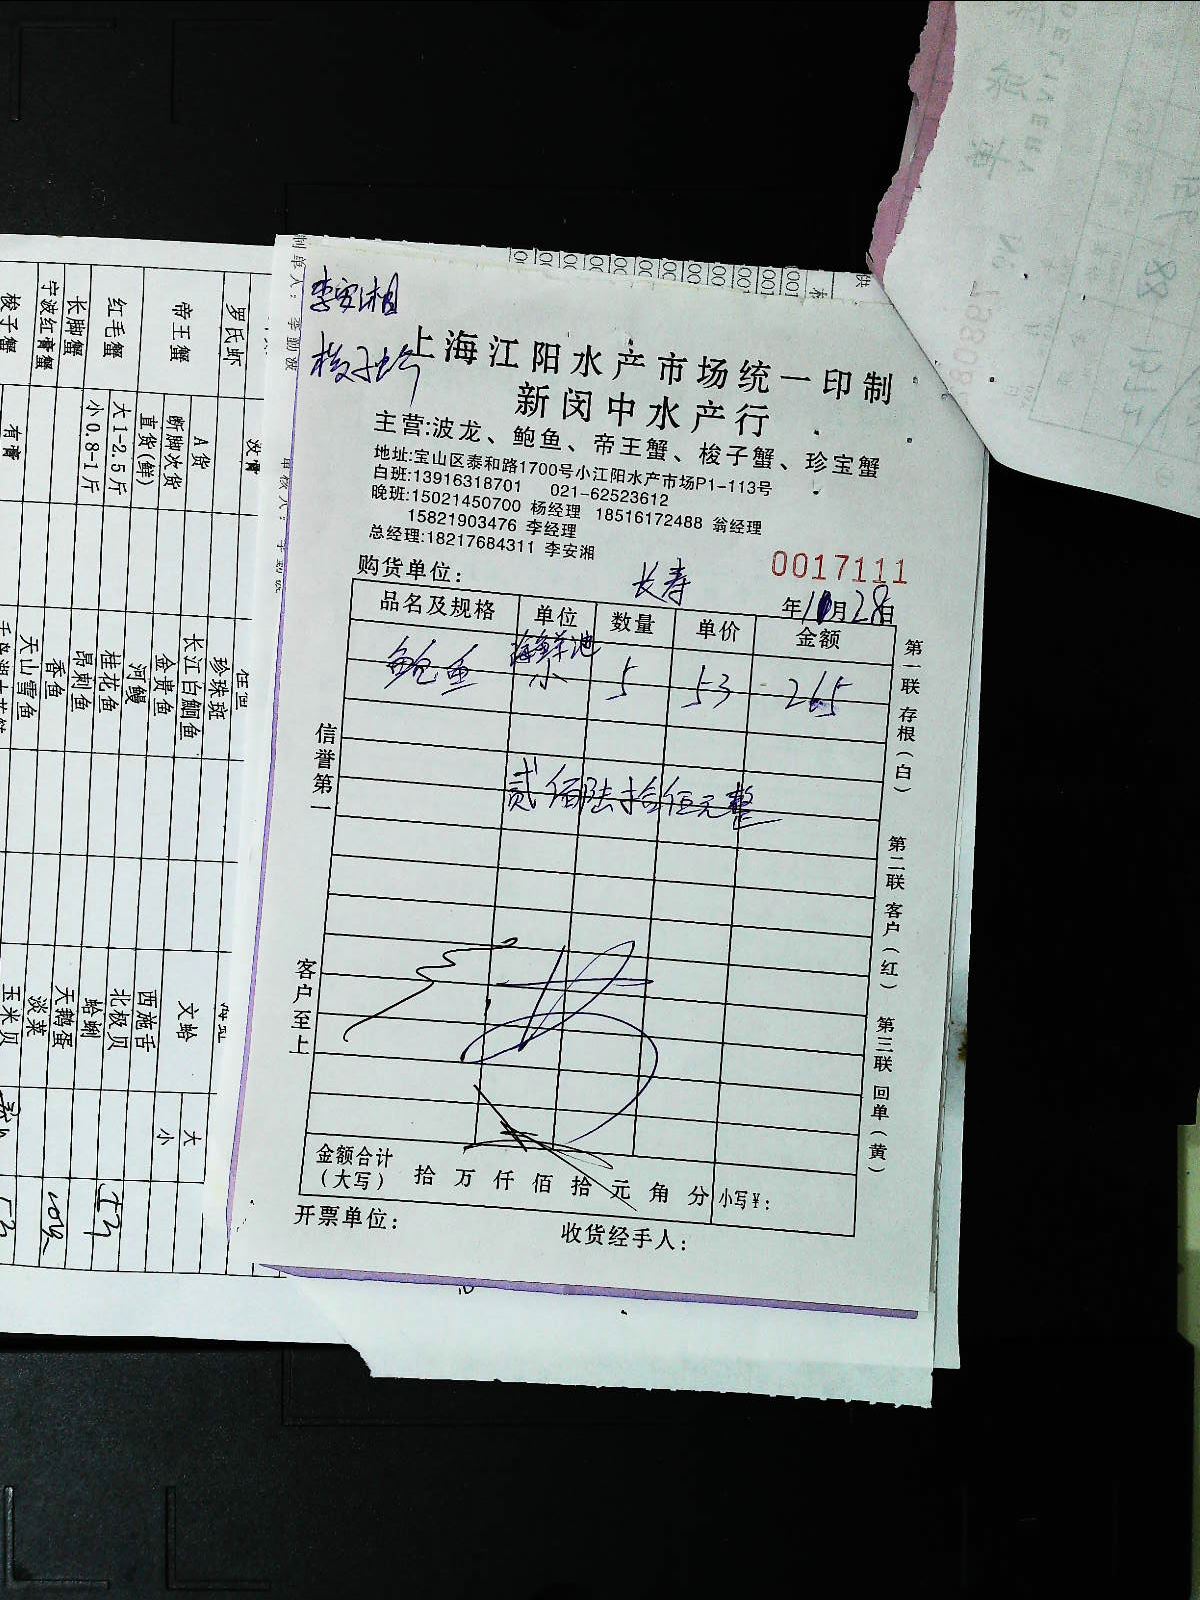 李安湘
梭子蟹
上海江阳水产市场统一印制
新闵中水产行
主营:波龙、鲍鱼、帝王蟹、梭子蟹、珍宝蟹
地址:宝山区泰和路1700号小江阳水产市场P1-113号
白班:13916318701 021-62523612
晚班:15021450700 杨经理 18516172488 翁经理
15821903476 李经理
总经理:18217684311 李安湘
0017111
购货单位: 长寿 年10月28日
品名及规格 单位 数量 单价 金额
海鲜池
鲍鱼 小 5 53 265
贰佰陆拾伍元整
金额合计
(大写) 拾 万 仟 佰 拾 元 角 分 小写¥:
开票单位: 收货经手人:
信誉第一
客户至上
第一联 存根(白)
第二联 客户(红)
第三联 回单(黄)
制单人:李勤波
罗氏虾
帝王蟹
红毛蟹
长脚蟹
宁波红膏蟹
梭子蟹
A货
断脚次货
直货(鲜)
大1-2.5斤
小0.8-1斤
有膏
珍珠斑
长江白鮰鱼
金贵鱼
河鳗
桂花鱼
昂刺鱼
香鱼
天山雪鱼
文蛤
大
小
西施舌
北极贝
蛤蜊
天鹅蛋
淡菜
玉米贝